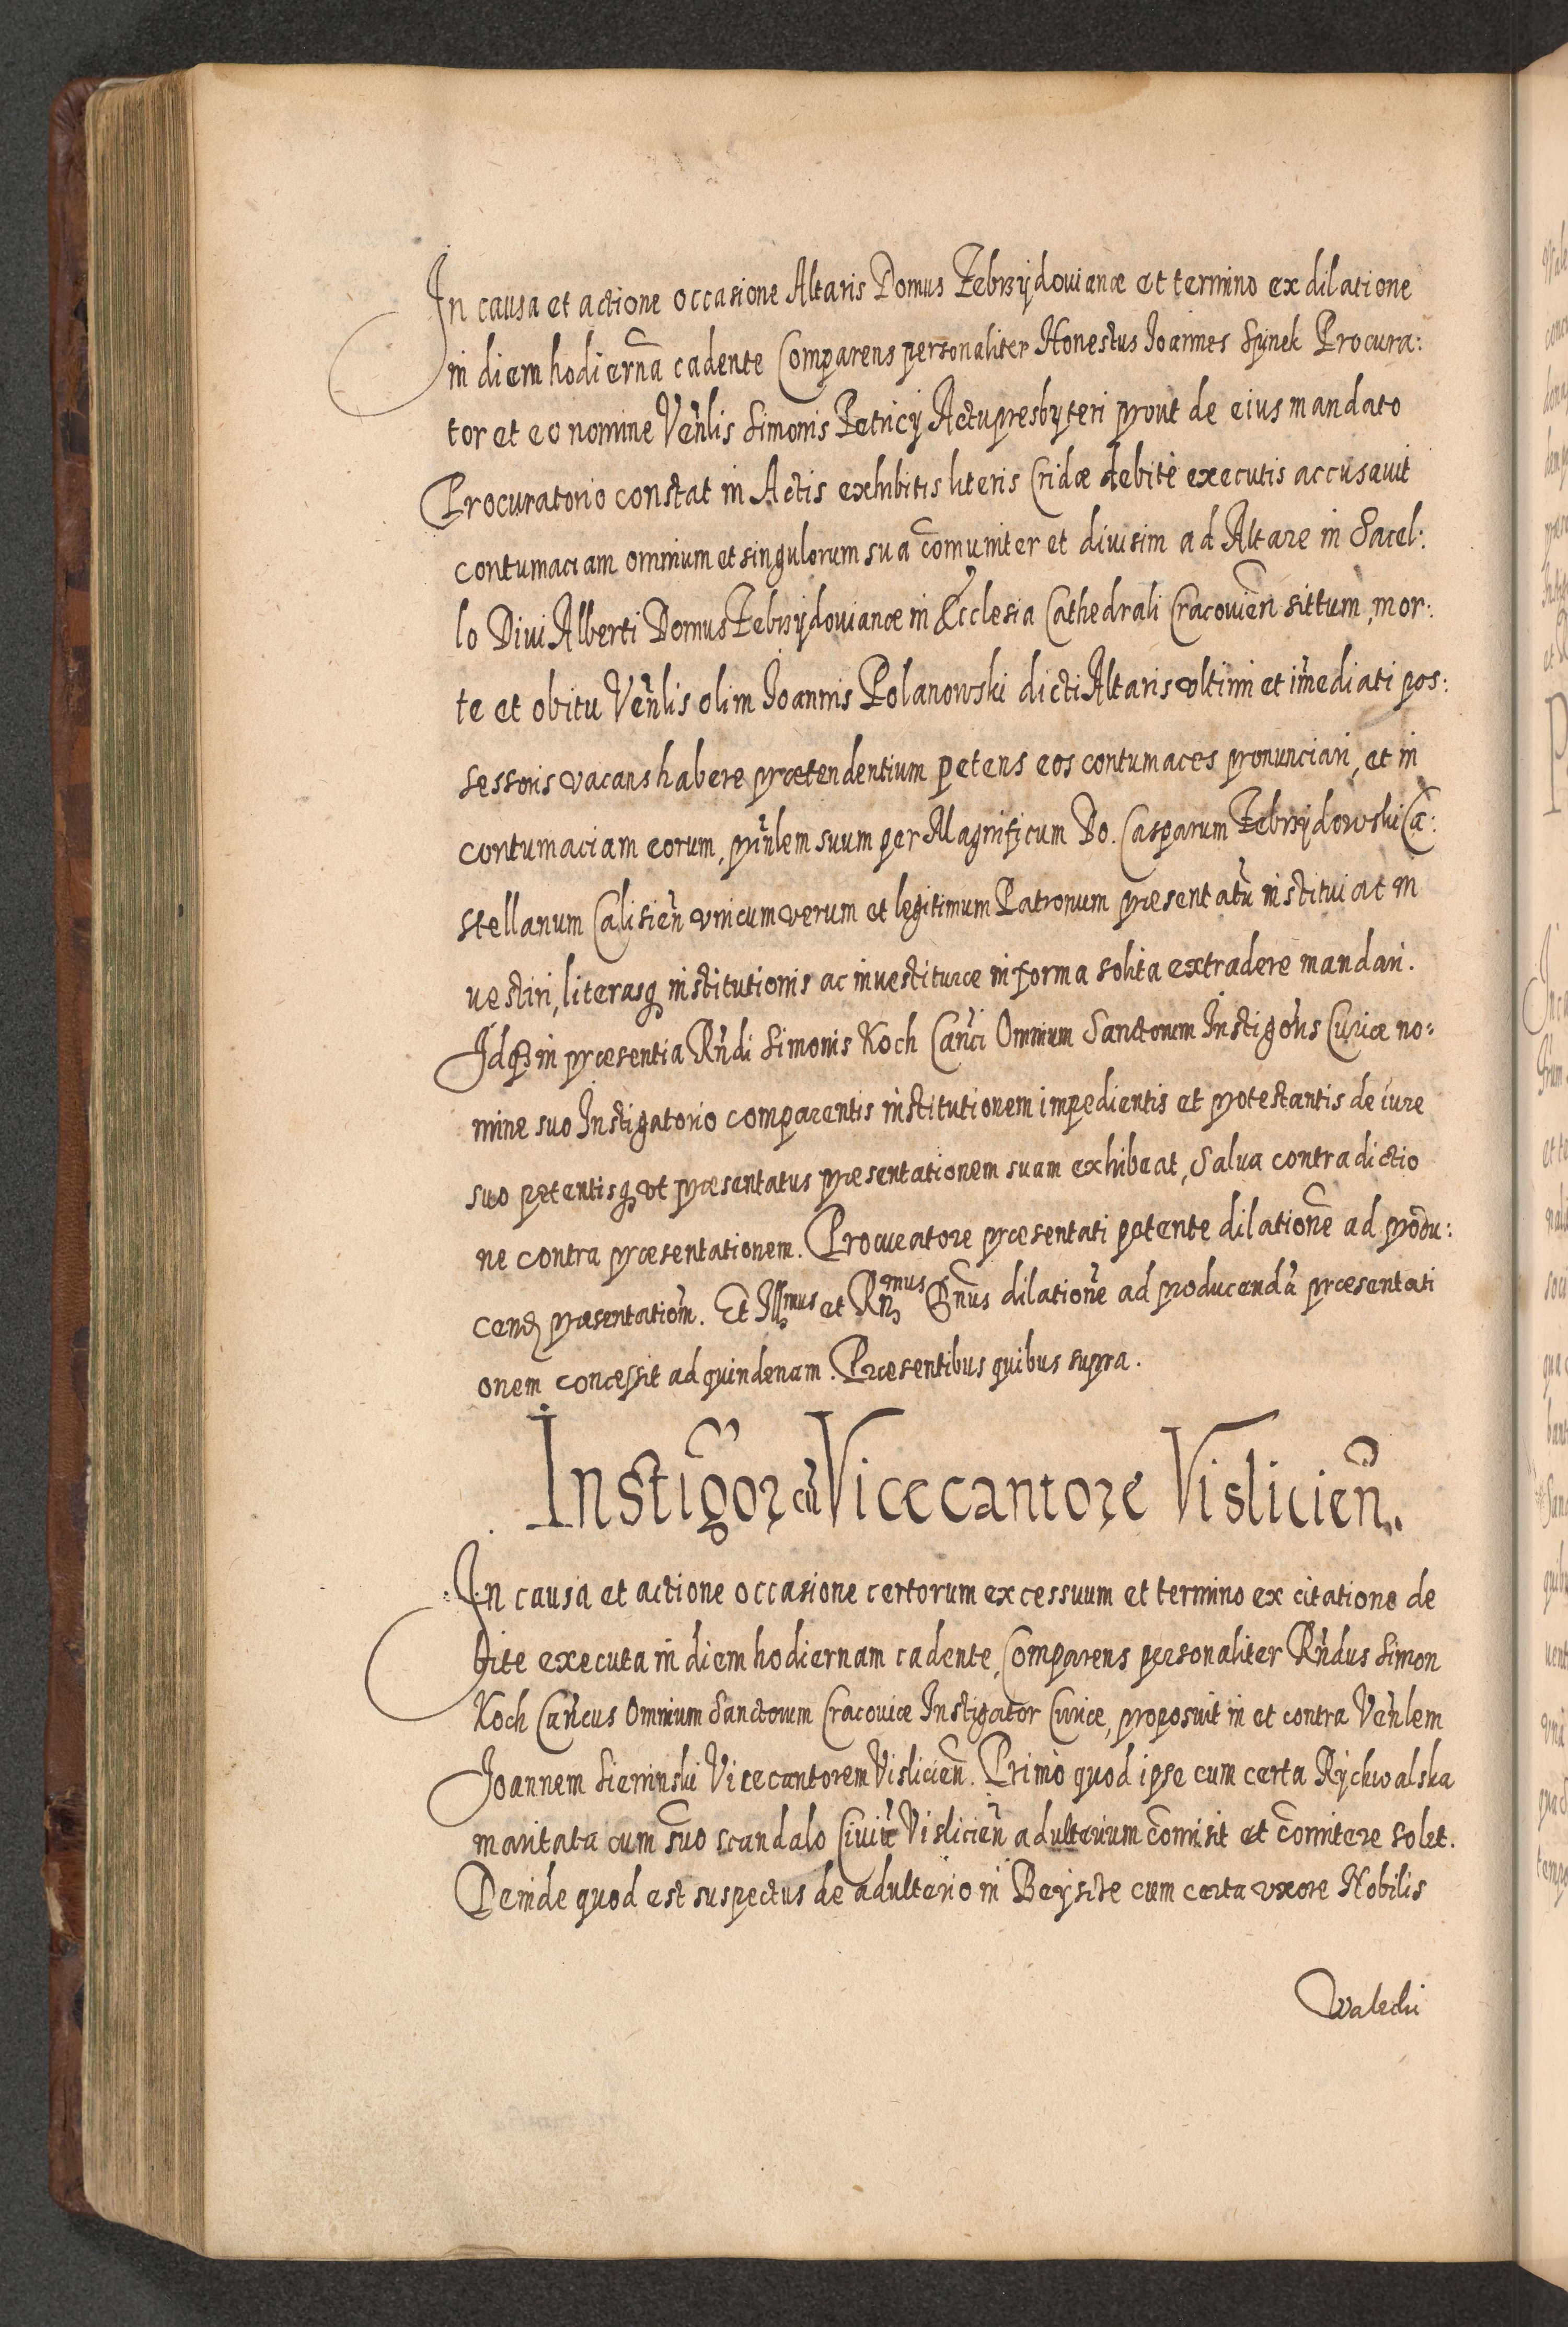 In causa et actione occasione Altaris Domus Zebrzÿdouianæ et termino ex dilatione
in diem hodiernã cadente Comparens personaliter Honestus Ioannes Sÿnek Procura:
tor et eo nomine Veñlis Simonis Petricÿ Actupresbyteri prout de eius mandato
Procuratorio constat in Actis exhibitis literis Cridæ debitè executis accusauit
contumaciam omnium et singulorum sua com̃uniter et diuisim ad Altare in Sacel:
lo Diui Alberti Domus Zebrzÿdouianæ in Ecclesia Cathedrali Cracouien̄ sittum, mor:
te et obitu Veñlis olim Ioannis Polanowski dicti Altaris vltimi et im̃ediati pos:
sessoris vacans habere prætendentium petens eos contumaces pronunciari, et in
contumaciam eorum, prin̄lem suum per Magnificum Do. Casparum Zebrzÿdowski Ca:
stellanum Calisien̄ vnicum verum et legitimum Patronum præsentatũ institui ac in
uestiri, literasq̃ institutionis ac inuestituræ in forma solita extradere mandari.
Idq̃ in præsentia Rñdi Simonis Koch Cañci Omnium Sanctorum Instigoris Curiæ no:
mine suo Instigatorio comparentis institutionem impedientis et protestantis de iure
suo petentisq̃ vt præsentatus præsentationem suam exhibeat, Salua contradictio
ne contra præsentationem. Procuratore præsentati petente dilationẽ ad produ:
cend̃ præsentatioñm. Et Illmus et Rñmus Dñus dilationẽ ad producendã præsentati
onem concessit ad quindenam. Præsentibus quibus supra.
Instigor cũ Vicecantore Vislicien̄.
In causa et actione occasione certorum excessuum et termino ex citatione de
bite executa in diem hodiernam cadente, Comparens personaliter Rñdus Simon
Koch Cañcus Omnium Sanctorum Cracouiæ Instigator Curiæ, proposuit in et contra Veñlem
Joannem Sieminski Vicecantorem Vislicien̄. Primò quod ipse cum certa Rÿchwalska
maritata cum suo scandalo Ciuit̃ Vislicien̄ adulterium com̃isit et com̃ittere solet.
Deinde quod est suspectus de adulterio in Beÿscze cum certa vxore Nobilis
Walechi